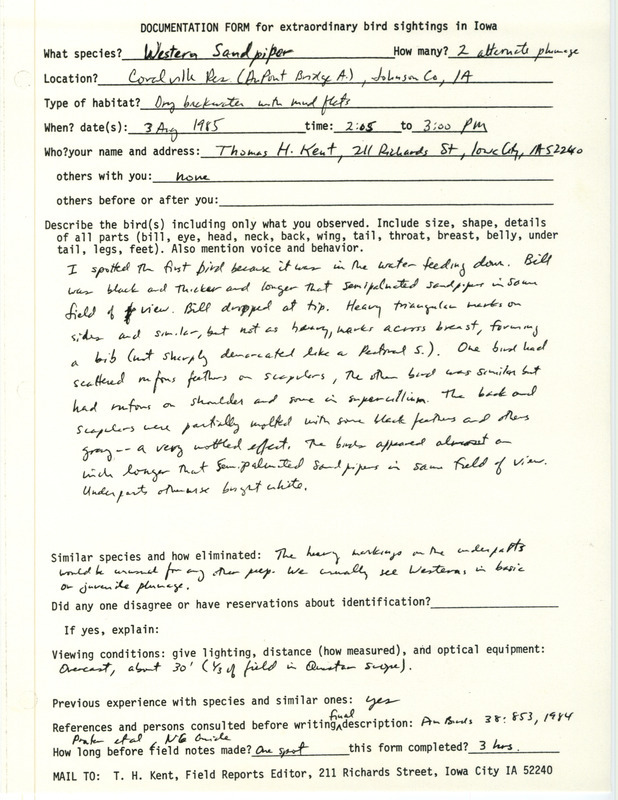 DOCUMENTATION FORM for extraordinary bird sightings in Iowa
What species? Western Sandpiper How many? 2 alternate plumage
Location? Coralville Res (DuPont Bridge A.), Johnson Co, IA
Type of habitat? Dry backwater with mud flats
When? date(s): 3 Aug 1985 time: 2:05 to 3:00 PM
Who?your name and address: Thomas H. Kent, 211 Richards St, Iowa City, IA 52240
others with you: none
others before or after you:
Describe the bird(s) including only what you observed. Include size, shape, details
of all parts (bill, eye, head, neck, back, wing, tail, throat, breast, belly, under
tail, legs, feet). Also mention voice and behavior.
I spotted the first bird because it was in the water feeding down. Bill
was black and thicker and longer that semipalmated sandpipers in same
field of view. Bill drooped at tip. Heavy triangular marks on
sides and similar, but not as heavy, marks across breast, forming
a bib (not sharply demarcated like a Pectoral S.). One bird had
scattered rufous feathers on scapulars, the other bird was similar but
had rufous on shoulder and some in supercilium. The back and
scapulars were partially molted with some black feathers and others
gray -- a very mottled effect. The birds appeared almost an
inch longer that Semipalmated Sandpipers in same field of view.
Underparts otherwise bright white.
Similar species and how eliminated: The heavy markings on the underparts
would be unusual for any other peep. We usually see Westerns in basic
or juvenile plumage.
Did any one disagree or have reservations about identification?
If yes, explain:
Viewing conditions: give lighting, distance (how measured), and optical equipment:
Overcast, about 30' (1/3 of field in Questar scope).
Previous experience with species and similar ones: yes
References and persons consulted before writing final description: Am Birds 38:853, 1984
Prater et al, NG Guide
How long before field notes made? One spot this form completed? 3 hrs.
MAIL TO: T. H. Kent, Field Reports Editor, 211 Richards Street, Iowa City IA 52240